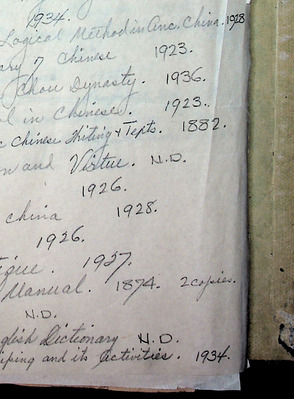 1934.
Logical Method in Anc. China. 1928
7 Chinese 1923.
Chou Dynasty. 1936.
in Chinese. 1923.
Chinese Writing & Texts. 1882.
and Virtue. N.D.
1926.
China 1928.
1926.
1927.
Manual. 1874. 2 copies.
N.D.
Dictionary N.D.
and its Activities. 1934.